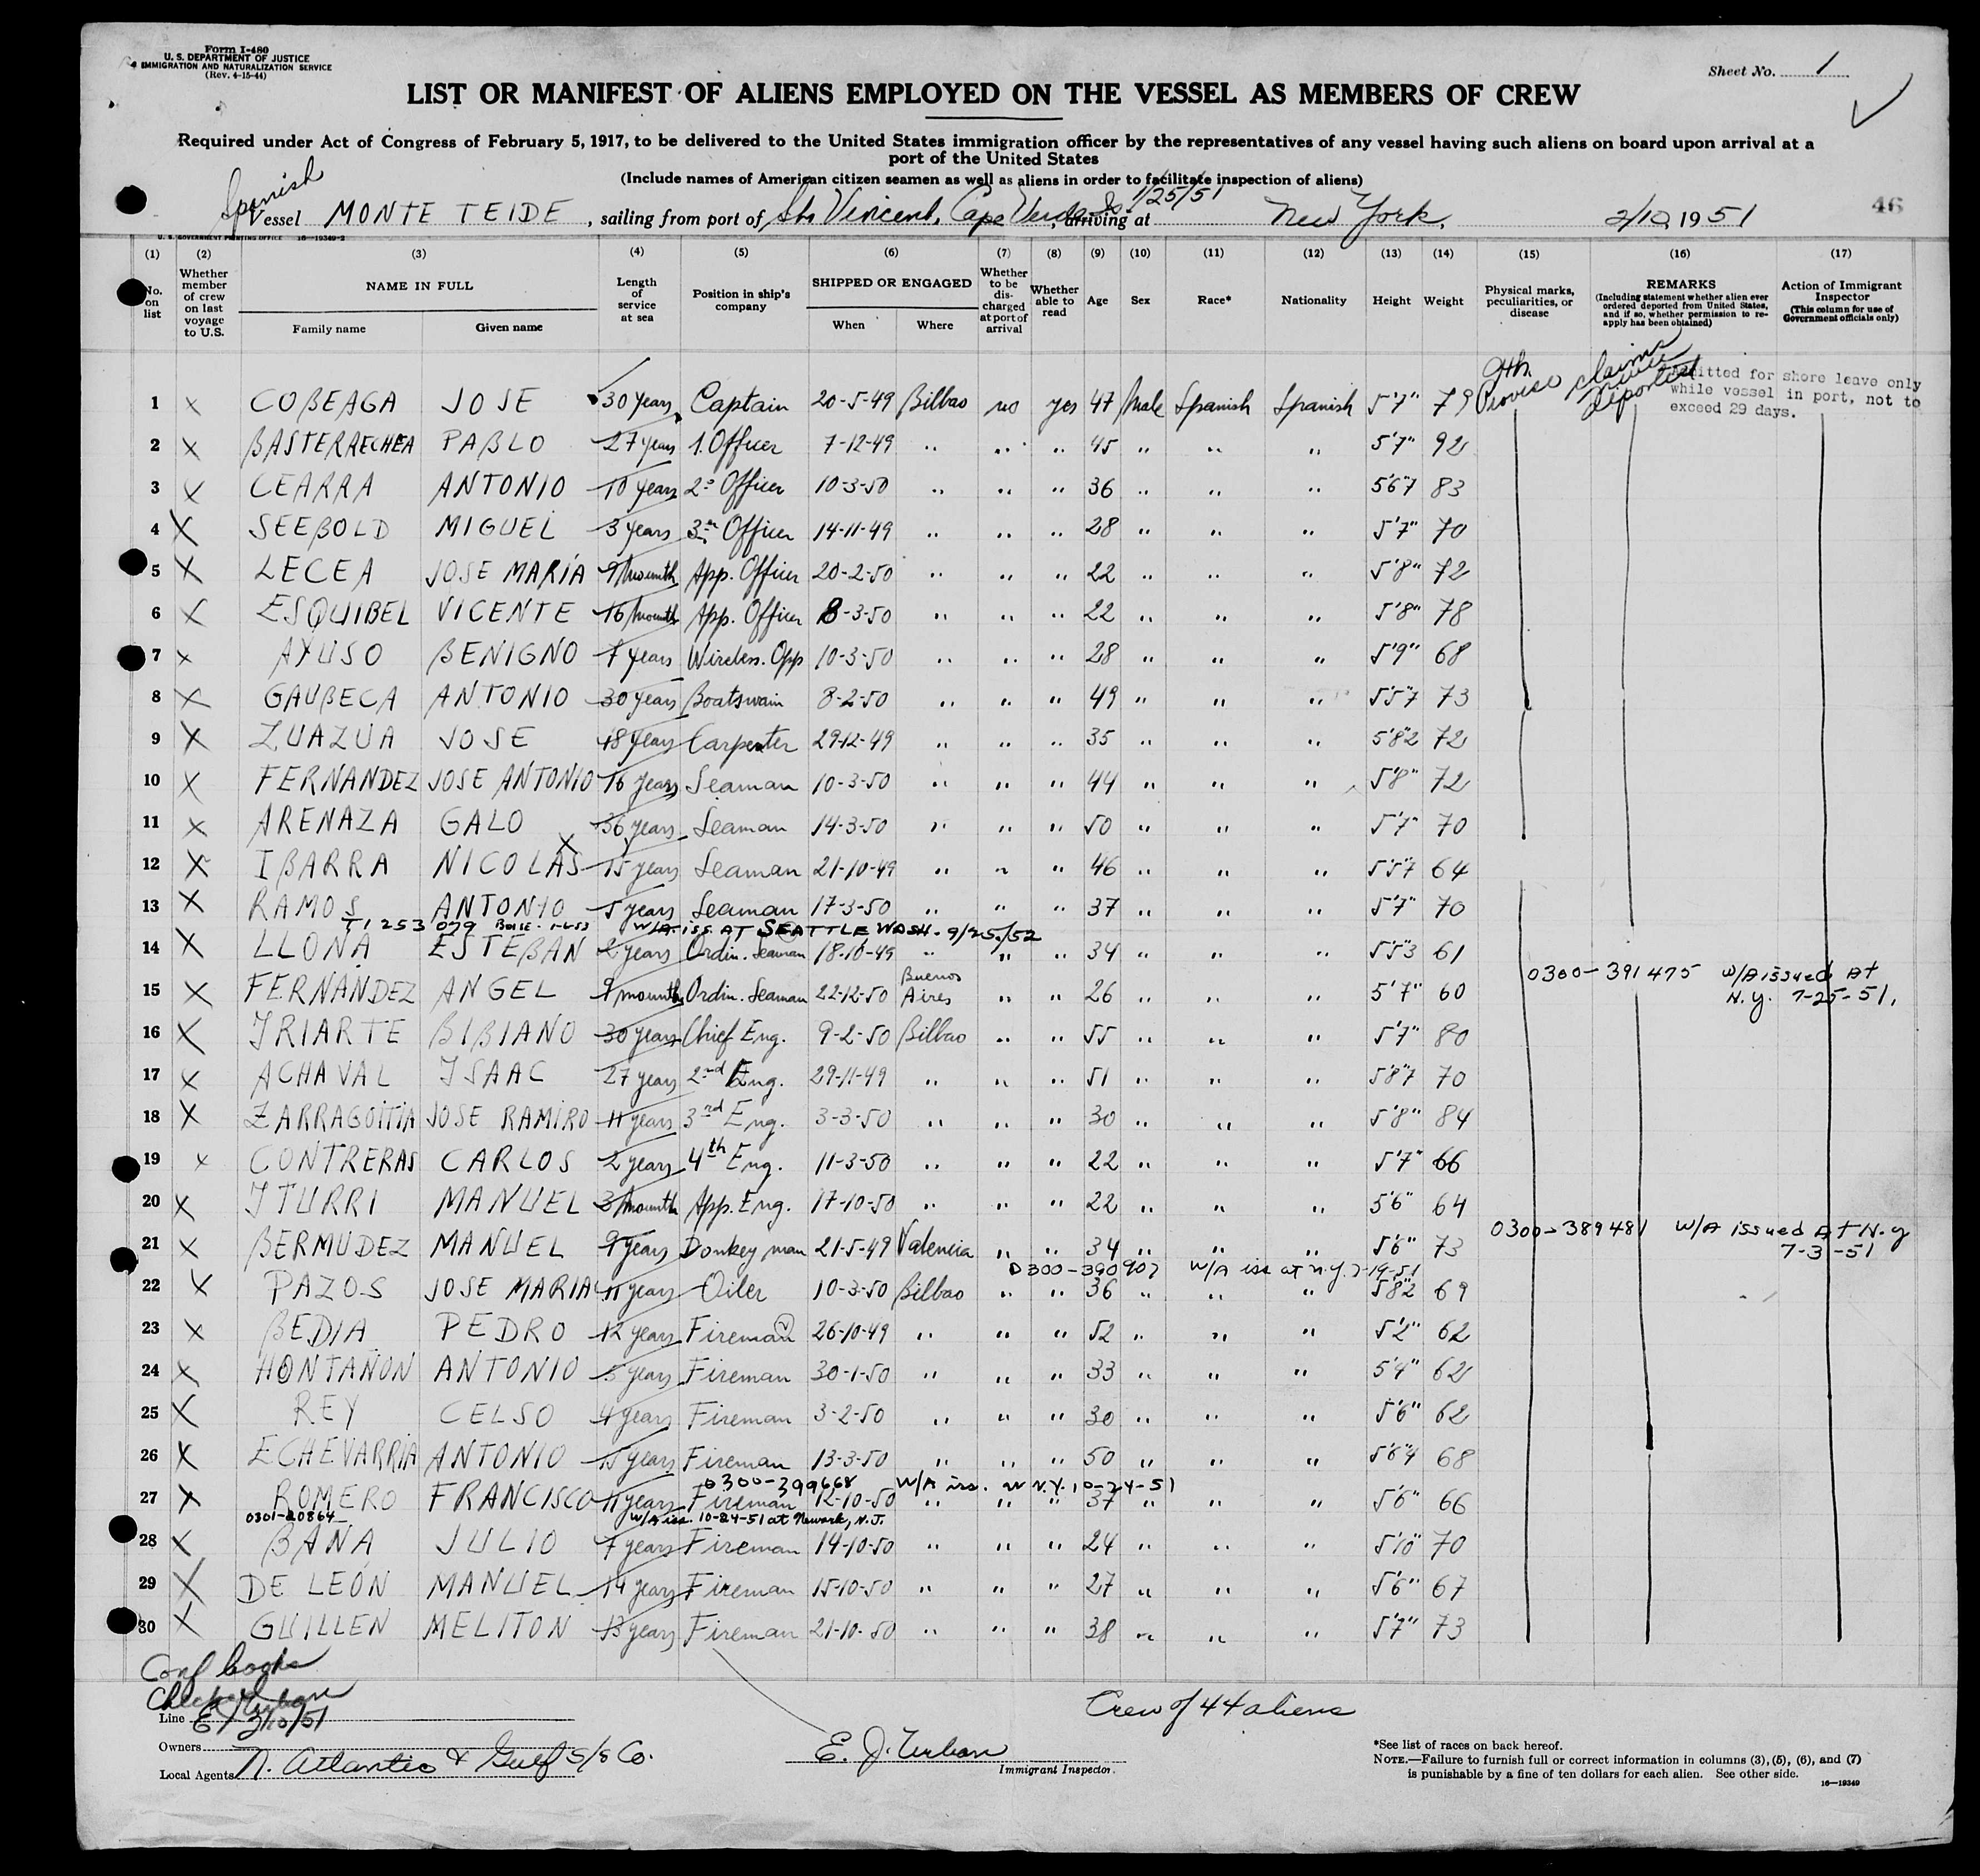 Form I-480
U. S. DEPARTMENT OF JUSTICE
IMMIGRATION AND NATURALIZATION SERVICE
(Rev. 4-15-44)
Sheet No. 1
LIST OR MANIFEST OF ALIENS EMPLOYED ON THE VESSEL AS MEMBERS OF CREW
Required under Act of Congress of February 5, 1917, to be delivered to the United States immigration officer by the representatives of any vessel having such aliens on board upon arrival at a
port of the United States
(Include names of American citizen seamen as well as aliens in order to facilitate inspection of aliens)
Spanish
Vessel MONTE TEIDE, sailing from port of Sto Vincent, Cape Verde Is. 1/25/51, arriving at New York, 2/10, 1951
46
U. S. GOVERNMENT PRINTING OFFICE 16-19349-2
(1) (2) (3) (4) (5) (6) (7) (8) (9) (10) (11) (12) (13) (14) (15) (16) (17)
No. on list
Whether member of crew on last voyage to U.S.
NAME IN FULL
Family name
Given name
Length of service at sea
Position in ship's company
SHIPPED OR ENGAGED
When
Where
Whether to be discharged at port of arrival
Whether able to read
Age
Sex
Race*
Nationality
Height
Weight
Physical marks, peculiarities, or disease
REMARKS
(Including statement whether alien ever ordered deported from United States, and if so, whether permission to reapply has been obtained)
Action of Immigrant Inspector
(This column for use of Government officials only)
9th Proviso claims never deported
Admitted for shore leave only
while vessel in port, not to
exceed 29 days.
1 X COBEAGA JOSE 30 years Captain 20-5-49 Bilbao no yes 47 Male Spanish Spanish 5'7" 79
2 X BASTERRECHEA PABLO 27 years 1. Officer 7-12-49 " " " 45 " " " 5'7" 92
3 X CEARRA ANTONIO 10 years 2º Officer 10-3-50 " " " 36 " " " 5'6"7 83
4 X SEEBOLD MIGUEL 3 years 3 Officer 14-11-49 " " " 28 " " " 5'7" 70
5 X LECEA JOSE MARÍA 9 mounth App. Officer 20-2-50 " " " 22 " " " 5'8" 72
6 X ESQUIBEL VICENTE 16 mounth App. Officer 8-3-50 " " " 22 " " " 5'8" 78
7 X AYUSO BENIGNO 7 years Wireless. Opp 10-3-50 " " " 28 " " " 5'9" 68
8 X GAUBECA ANTONIO 30 years Boatswain 8-2-50 " " " 49 " " " 5'5"7 73
9 X ZUAZUA JOSE 18 years Carpenter 29-12-49 " " " 35 " " " 5'8"2 72
10 X FERNANDEZ JOSE ANTONIO 16 years Seaman 10-3-50 " " " 44 " " " 5'8" 72
11 X ARENAZA GALO 36 years Seaman 14-3-50 " " " 50 " " " 5'7" 70
12 X IBARRA NICOLAS X 15 years Seaman 21-10-49 " " " 46 " " " 5'5"7 64
13 X RAMOS ANTONIO 5 years Seaman 17-3-50 " " " 37 " " " 5'7" 70
T1 253 079 W/A iss. AT SEATTLE WASH. 9/25/52
14 X LLONA ESTEBAN 2 years Ordin. Seaman 18-10-49 " " " 34 " " " 5'5"3 61
15 X FERNANDEZ ANGEL 9 mounths Ordin. Seaman 22-12-50 Buenos Aires " " 26 " " " 5'7" 60 0300-391475 W/A issued At N.Y. 7-25-51.
16 X IRIARTE BIBIANO 30 years Chief Eng. 9-2-50 Bilbao " " 55 " " " 5'7" 80
17 X ACHAVAL ISAAC 27 years 2nd Eng. 29-11-49 " " " 51 " " " 5'8"7 70
18 X ZARRAGOITIA JOSE RAMIRO 11 years 3rd Eng. 3-3-50 " " " 30 " " " 5'8" 84
19 X CONTRERAS CARLOS 2 years 4th Eng. 11-3-50 " " " 22 " " " 5'7" 66
20 X ITURRI MANUEL 3 mounth App. Eng. 17-10-50 " " " 22 " " " 5'6" 64
21 X BERMUDEZ MANUEL 9 years Donkey man 21-5-49 Valencia " " 34 " " " 5'6" 73 0300-389481 W/A issued At N.Y 7-3-51
0300-390907 W/A iss at N.Y. 7-19-51
22 X PAZOS JOSE MARIA 11 years Oiler 10-3-50 Bilbao " " 36 " " " 5'8"2 69
23 X BEDIA PEDRO 12 years Fireman 26-10-49 " " " 52 " " " 5'2" 62
24 X HONTAÑON ANTONIO 5 years Fireman 30-1-50 " " " 33 " " " 5'4" 62
25 X REY CELSO 4 years Fireman 3-2-50 " " " 30 " " " 5'6" 62
26 X ECHEVARRIA ANTONIO 15 years Fireman 13-3-50 " " " 50 " " " 5'6"4 68
0300-399668 W/A iss. N.Y. 10-24-51
27 X ROMERO FRANCISCO 11 years Fireman 12-10-50 " " " 37 " " " 5'6" 66
0301-20864 W/A iss. 10-24-51 at Newark, N.J.
28 X BAÑA JULIO 7 years Fireman 14-10-50 " " " 24 " " " 5'10" 70
29 X DE LEÓN MANUEL 14 years Fireman 15-10-50 " " " 27 " " " 5'6" 67
30 X GUILLEN MELITON 13 years Fireman 21-10-50 " " " 38 " " " 5'7" 73
Conf books
Checked Urban
EJ 2/10/51
Crew of 44 aliens
Line
Owners
Local Agents N. Atlantic & Gulf S/S Co.
E. J. Urban
Immigrant Inspector.
*See list of races on back hereof.
NOTE.—Failure to furnish full or correct information in columns (3), (5), (6), and (7)
is punishable by a fine of ten dollars for each alien. See other side.
16—19349